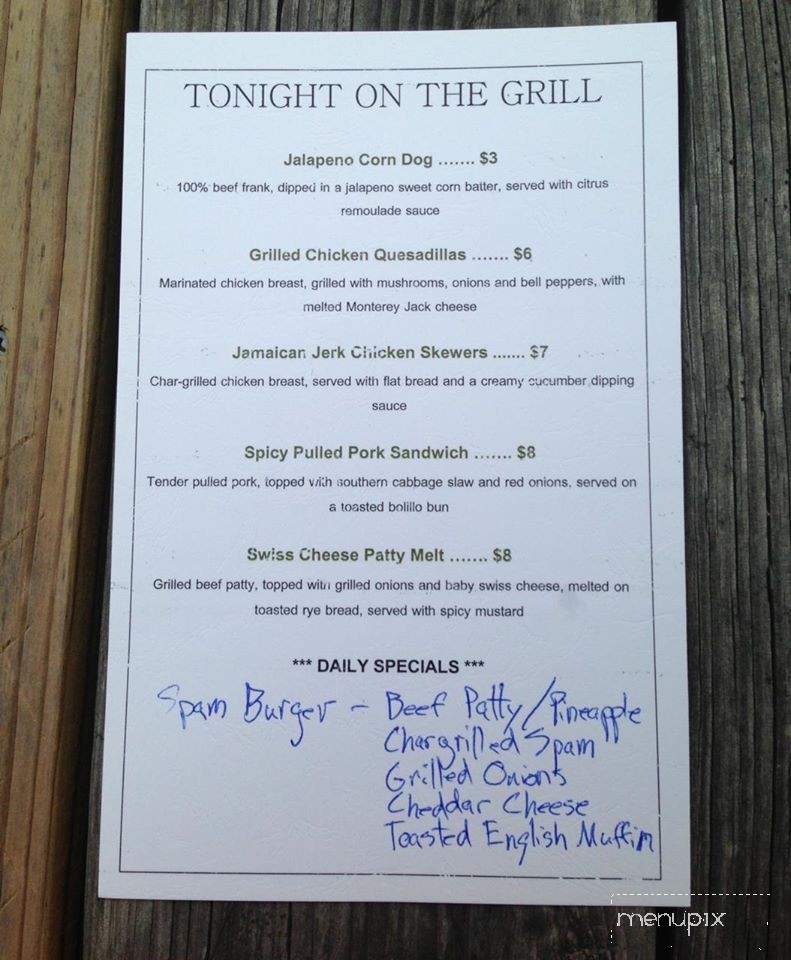 TONIGHT ON THE GRILL
Jalapeno Corn Dog ....... $3
100% beef frank, dipped in a jalapeno sweet corn batter, served with citrus
remoulade sauce
Grilled Chicken Quesadillas ....... $6
Marinated chicken breast, grilled with mushrooms, onions and bell peppers, with
melted Monterey Jack cheese
Jamaican Jerk Chicken Skewers ....... $7
Char-grilled chicken breast, served with flat bread and a creamy cucumber dipping
sauce
Spicy Pulled Pork Sandwich ....... $8
Tender pulled pork, topped with southern cabbage slaw and red onions, served on
a toasted bolillo bun
Swiss Cheese Patty Melt ....... $8
Grilled beef patty, topped with grilled onions and baby swiss cheese, melted on
toasted rye bread, served with spicy mustard
*** DAILY SPECIALS ***
Spam Burger - Beef Patty/Pineapple
Chargrilled Spam
Grilled Onions
Cheddar Cheese
Toasted English Muffin
menupix